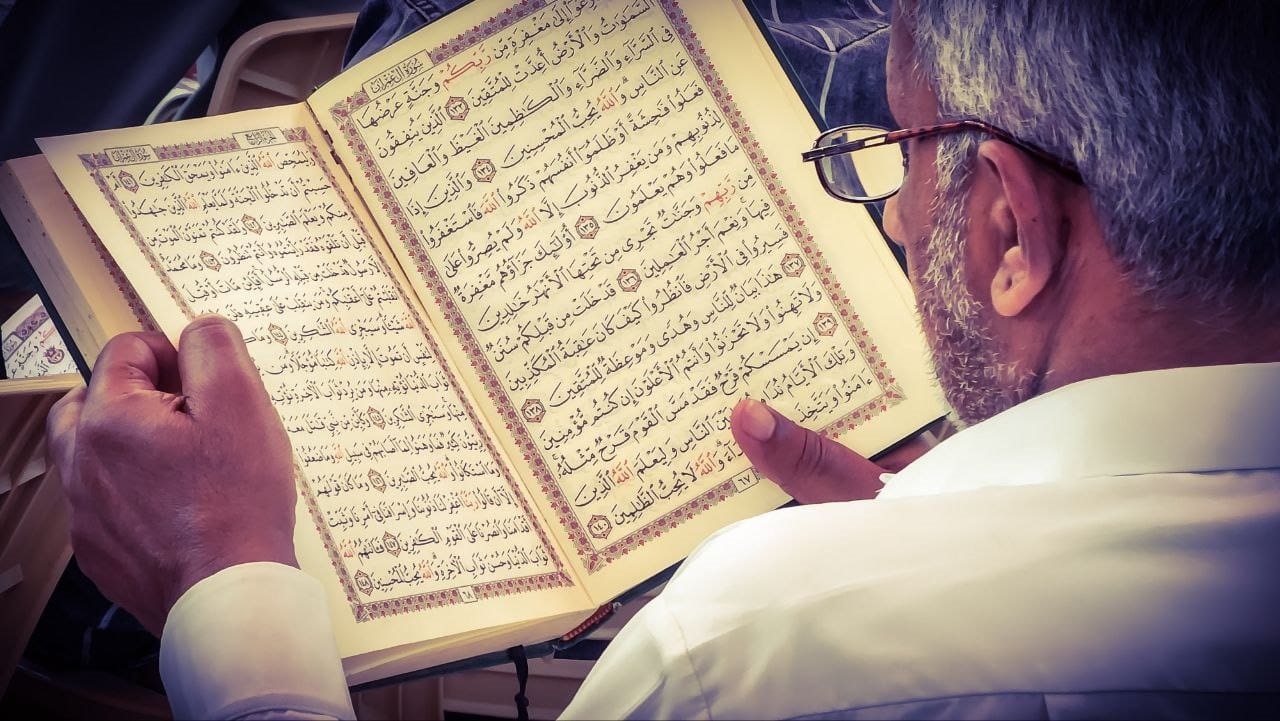 سُورَةُ آلِ عِمْرَانَ
رِعُوٓا۟ إِلَىٰ مَغْفِرَةٍ مِّن رَّبِّكُمْ وَجَنَّةٍ عَرْضُهَا
ٱلسَّمَٰوَٰتُ وَٱلْأَرْضُ أُعِدَّتْ لِلْمُتَّقِينَ ١٣٣ ٱلَّذِينَ يُنفِقُونَ
فِى ٱلسَّرَّآءِ وَٱلضَّرَّآءِ وَٱلْكَٰظِمِينَ ٱلْغَيْظَ وَٱلْعَافِينَ
عَنِ ٱلنَّاسِ وَٱللَّهُ يُحِبُّ ٱلْمُحْسِنِينَ ١٣٤ وَٱلَّذِينَ إِذَا
فَعَلُوا۟ فَٰحِشَةً أَوْ ظَلَمُوٓا۟ أَنفُسَهُمْ ذَكَرُوا۟ ٱللَّهَ فَٱسْتَغْفَرُوا۟
لِذُنُوبِهِمْ وَمَن يَغْفِرُ ٱلذُّنُوبَ إِلَّا ٱللَّهُ وَلَمْ يُصِرُّوا۟ عَلَىٰ
مَا فَعَلُوا۟ وَهُمْ يَعْلَمُونَ ١٣٥ أُو۟لَٰٓئِكَ جَزَآؤُهُم مَّغْفِرَةٌ
مِّن رَّبِّهِمْ وَجَنَّٰتٌ تَجْرِى مِن تَحْتِهَا ٱلْأَنْهَٰرُ خَٰلِدِينَ
فِيهَا وَنِعْمَ أَجْرُ ٱلْعَٰمِلِينَ ١٣٦ قَدْ خَلَتْ مِن قَبْلِكُمْ سُنَنٌ
فَسِيرُوا۟ فِى ٱلْأَرْضِ فَٱنظُرُوا۟ كَيْفَ كَانَ عَٰقِبَةُ ٱلْمُكَذِّبِينَ
١٣٧ هَٰذَا بَيَانٌ لِّلنَّاسِ وَهُدًى وَمَوْعِظَةٌ لِّلْمُتَّقِينَ ١٣٨
وَلَا تَهِنُوا۟ وَلَا تَحْزَنُوا۟ وَأَنتُمُ ٱلْأَعْلَوْنَ إِن كُنتُم مُّؤْمِنِينَ
١٣٩ إِن يَمْسَسْكُمْ قَرْحٌ فَقَدْ مَسَّ ٱلْقَوْمَ قَرْحٌ مِّثْلُهُۥ
وَتِلْكَ ٱلْأَيَّامُ بَيْنَ ٱلنَّاسِ وَلِيَعْلَمَ ٱللَّهُ ٱلَّذِينَ
ءَامَنُوا۟ وَيَتَّخِذَ وَٱللَّهُ لَا يُحِبُّ ٱلظَّٰلِمِينَ ١٤٠
٦٧
الجُزْءُ الرَّابِعُ
سُورَةُ آلِ عِمْرَانَ
وَلِيُمَحِّصَ ٱللَّهُ ٱلَّذِينَ ءَامَنُوا۟ وَيَمْحَقَ ٱلْكَٰفِرِينَ ١٤١ أَمْ
حَسِبْتُمْ أَن تَدْخُلُوا۟ ٱلْجَنَّةَ وَلَمَّا يَعْلَمِ ٱللَّهُ ٱلَّذِينَ جَٰهَدُوا۟
مِنكُمْ وَيَعْلَمَ ٱلصَّٰبِرِينَ ١٤٢ وَلَقَدْ كُنتُمْ تَمَنَّوْنَ ٱلْمَوْتَ مِن
قَبْلِ أَن تَلْقَوْهُ فَقَدْ رَأَيْتُمُوهُ وَأَنتُمْ تَنظُرُونَ ١٤٣ وَمَا مُحَمَّدٌ
إِلَّا رَسُولٌ قَدْ خَلَتْ مِن قَبْلِهِ ٱلرُّسُلُ أَفَإِي۟ن مَّاتَ أَوْ قُتِلَ
ٱنقَلَبْتُمْ عَلَىٰٓ أَعْقَٰبِكُمْ وَمَن يَنقَلِبْ عَلَىٰ عَقِبَيْهِ
ٱللَّهَ شَيْـًٔا وَسَيَجْزِى ٱللَّهُ ٱلشَّٰكِرِينَ ١٤٤
أَن تَمُوتَ إِلَّا بِإِذْنِ ٱللَّهِ كِتَٰبًا مُّؤَجَّلًا وَمَن
ثَوَابَ ٱلدُّنْيَا نُؤْتِهِۦ مِنْهَا وَمَن يُرِدْ ثَوَابَ ٱلْءَاخِرَةِ
مِنْهَا وَسَنَجْزِى ٱلشَّٰكِرِينَ ١٤٥ وَكَأَيِّن مِّن نَّبِىٍّ قَٰتَلَ مَعَهُۥ
رِبِّيُّونَ كَثِيرٌ فَمَا وَهَنُوا۟ لِمَآ أَصَابَهُمْ فِى سَبِيلِ ٱللَّهِ وَمَا ضَعُفُوا۟
وَمَا ٱسْتَكَانُوا۟ وَٱللَّهُ يُحِبُّ ٱلصَّٰبِرِينَ ١٤٦ وَمَا كَانَ قَوْلَهُمْ
إِلَّآ أَن قَالُوا۟ رَبَّنَا ٱغْفِرْ لَنَا ذُنُوبَنَا وَإِسْرَافَنَا فِىٓ أَمْرِنَا وَثَبِّتْ
أَقْدَامَنَا وَٱنصُرْنَا عَلَى ٱلْقَوْمِ ٱلْكَٰفِرِينَ ١٤٧ فَـَٔاتَىٰهُمُ ٱللَّهُ
ثَوَابَ ٱلدُّنْيَا وَحُسْنَ ثَوَابِ ٱلْءَاخِرَةِ وَٱللَّهُ يُحِبُّ ٱلْمُحْسِنِينَ ١٤٨
٦٨